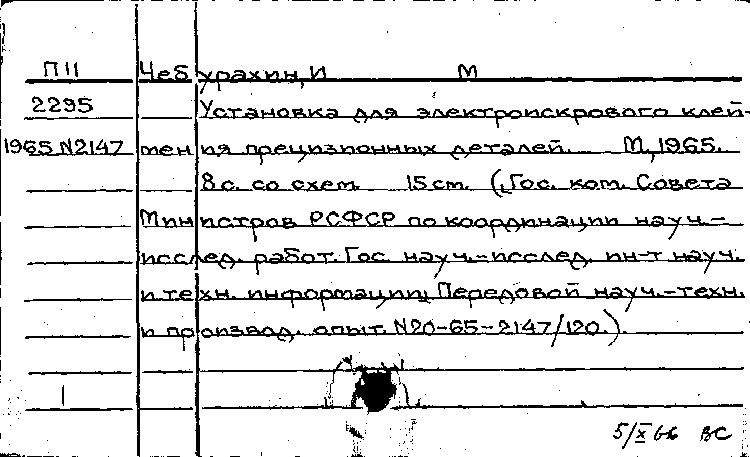 П11 Чебурахин, И М
2295 Установка для электроискрового клей-
1965 N2147 тения прецизионных деталей. М., 1965.
8 с. со схем. 15 cm. (Гос. ком. Совета
Министров РСФСР по координации науч.-
исслед. работ. Гос. науч.-исслед. ин-т науч.
и техн. информации. Передовой науч.-техн.
и производ. опыт. N20-65-2147/120.)
5/X 66 ВС